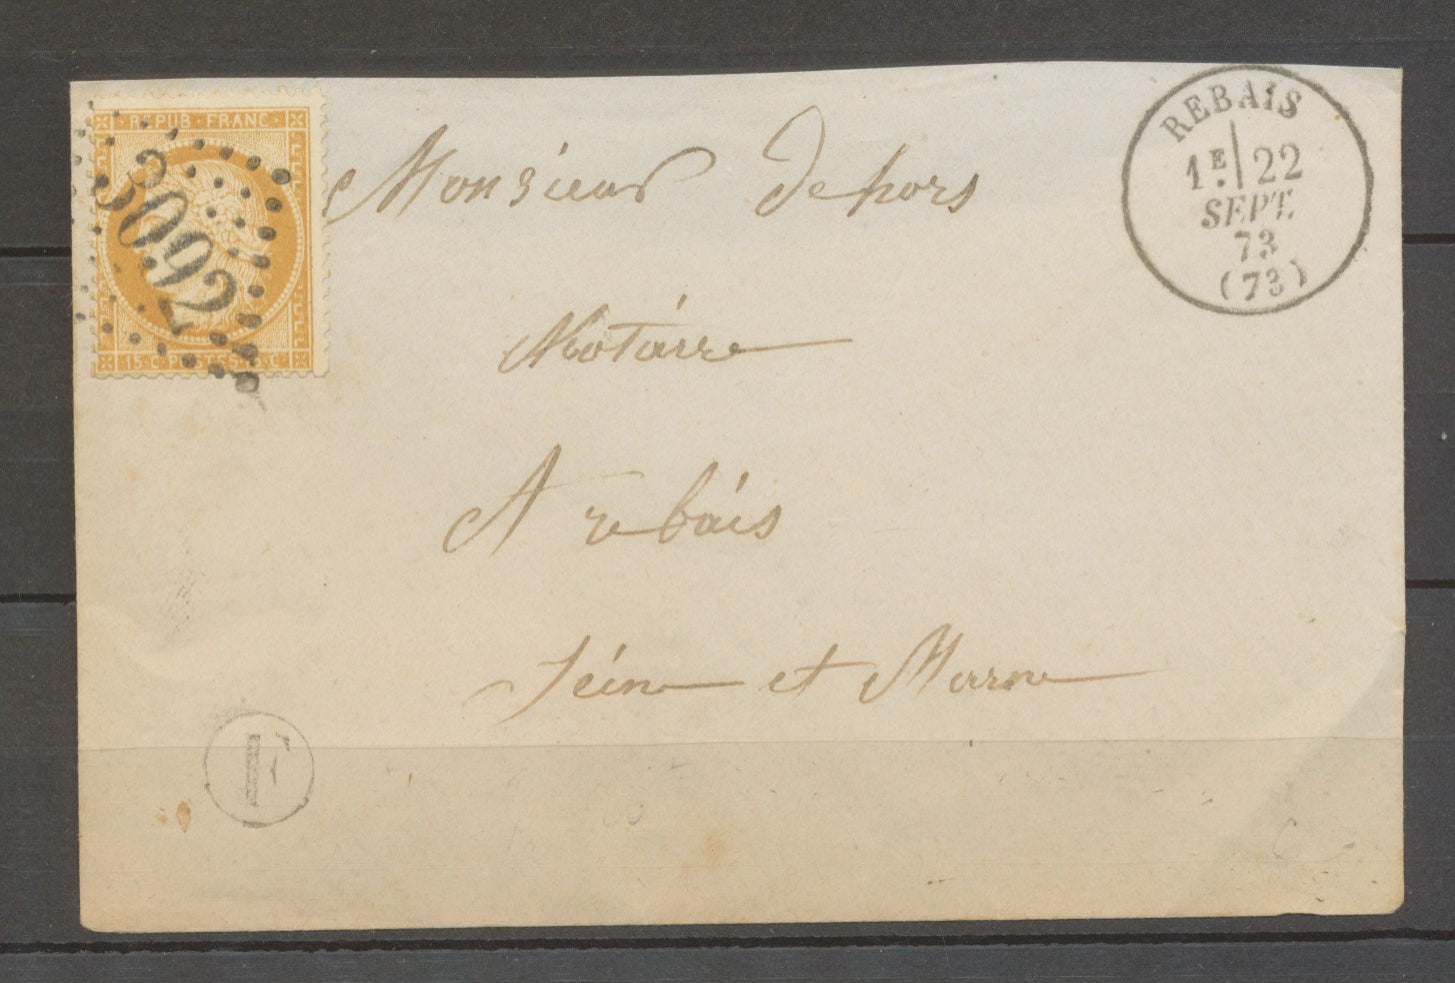 REPUB·FRANC·
3092
15·C·POSTES·15·C
REBAIS
1E 22
SEPT.
73
(73)
Monsieur Dehors
Notaire
A rebais
Seine et Marne
F